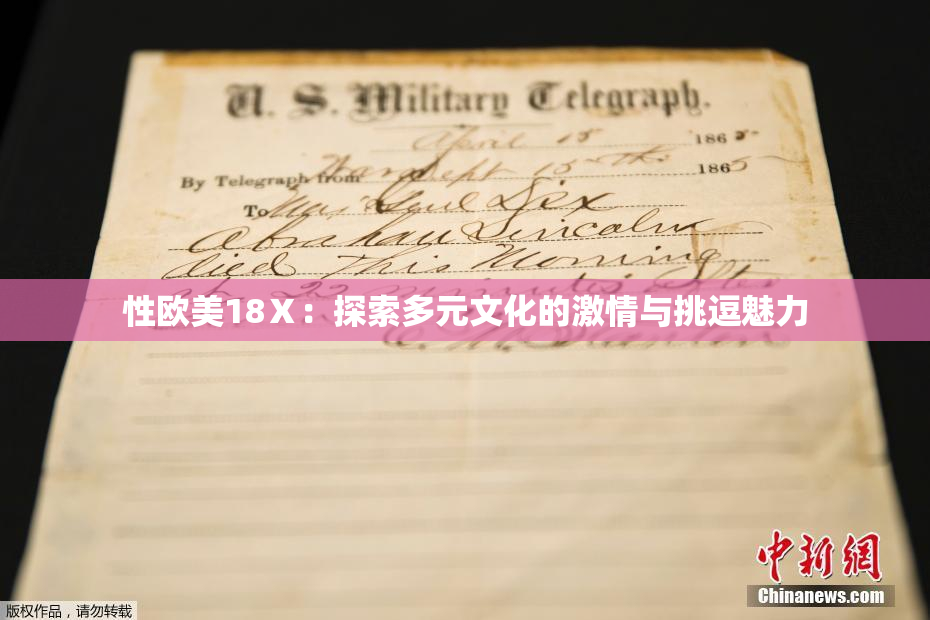 U. S. Military Telegraph.
April 15 1865
By Telegraph from War Dept 15th 1865
To Maj Genl Dix
Abraham Lincoln
died This Morning
at 22 minutes after
性欧美18X：探索多元文化的激情与挑逗魅力
E. M. Stanton
中新网
Chinanews.com
版权作品，请勿转载